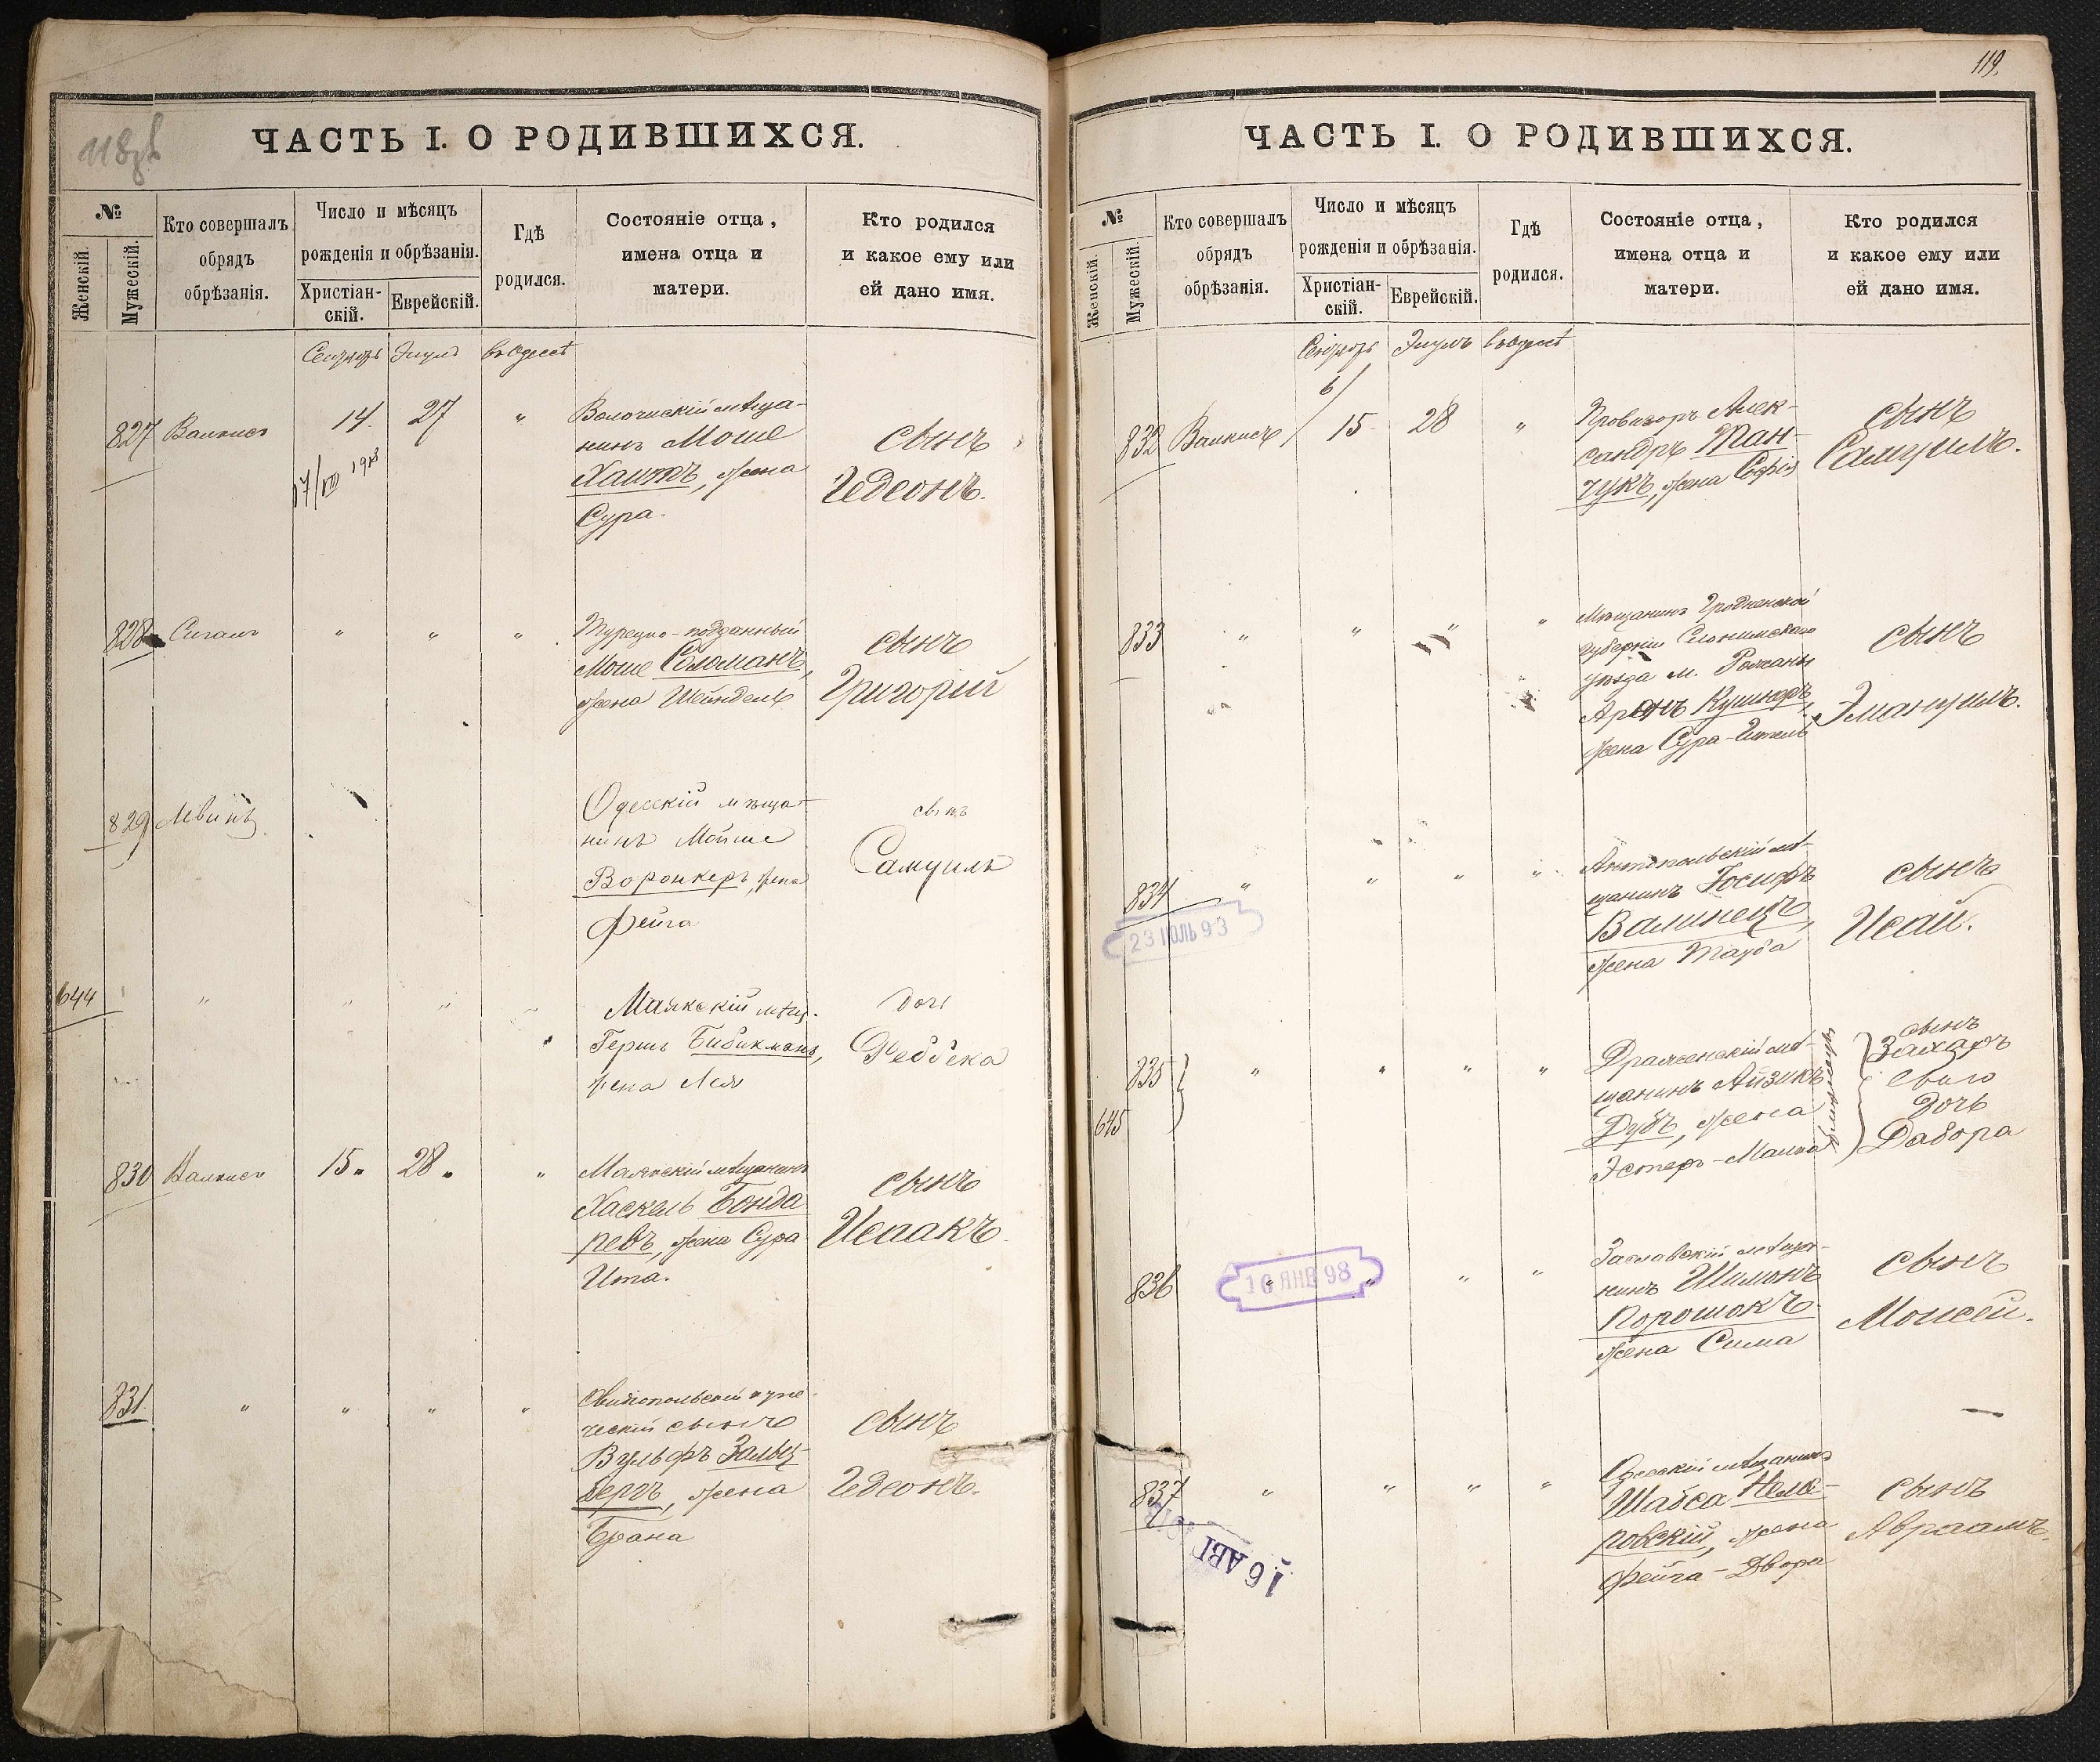 118об
ЧАСТЬ I. О РОДИВШИХСЯ.
№
Женскій.
Мужескій.
Кто совершалъ
обрядъ
обрѣзанія.
Число и мѣсяцъ
рожденія и обрѣзанія.
Христіан-
скій.
Еврейскій.
Гдѣ
родился.
Состояніе отца,
имена отца и
матери.
Кто родился
и какое ему или
ей дано имя.
Сентябрь Элулъ въ Одессѣ
827 14. 27 "
17/VIII 1913
мѣща-
нинъ Моше
Хаитъ, жена
Сура.
сынъ
Гедеонъ.
828 " " "
Турецко-подданный
Моше Соломанъ,
жена Шейндель
сынъ
Григорій
829 Левинъ
Одесскій мѣща-
нинъ Мойше
Воронкеръ, жена
Фейга
сынъ
Самуилъ
644 " " " "
Маякскій мѣщ.
Гершъ Бибикманъ,
жена Лея
дочь
Ребека
830 15. 28. "
Маякскій мѣщанинъ
Хаскель Бонда
ревъ, жена Сура
Ита.
сынъ
Исаакъ.
831. " " " "
купе-
ческій сынъ
Вульфъ Зальц-
бергъ, жена
Брана
сынъ
Гедеонъ.
119.
ЧАСТЬ I. О РОДИВШИХСЯ.
№
Женскій.
Мужескій.
Кто совершалъ
обрядъ
обрѣзанія.
Число и мѣсяцъ
рожденія и обрѣзанія.
Христіан-
скій.
Еврейскій.
Гдѣ
родился.
Состояніе отца,
имена отца и
матери.
Кто родился
и какое ему или
ей дано имя.
Сентябрь Элулъ въ Одессѣ
832 6/15 28 "
Провизоръ Алек-
сандръ Пан-
чукъ, жена Софія
сынъ
Самуилъ.
833 " " " "
Мѣщанинъ Гродненской
губерніи Слонимскаго
уѣзда м. Рожаны
Аронъ Кушнеръ,
жена Сура-Гитель
сынъ
Эмануилъ.
834 " " " "
23 ІЮЛЬ 93
мѣ-
щанинъ Іосифъ
Валинецъ,
жена Тауба
сынъ
Исай.
835 " " " "
645
мѣ-
щанинъ Айзикъ
Дубъ, жена
Эстеръ-Малка
сынъ
Захаръ
дочь
Дабора
836 " " " "
16 ЯНВ 98
Заславскій мѣща-
нинъ Шимонъ
Порошокъ
жена Сима
сынъ
Моисей.
837 " " " "
16 АВГ
Одесскій мѣщанинъ
Шабса
ровскій, жена
Фейга-Двора
сынъ
Авраамъ.